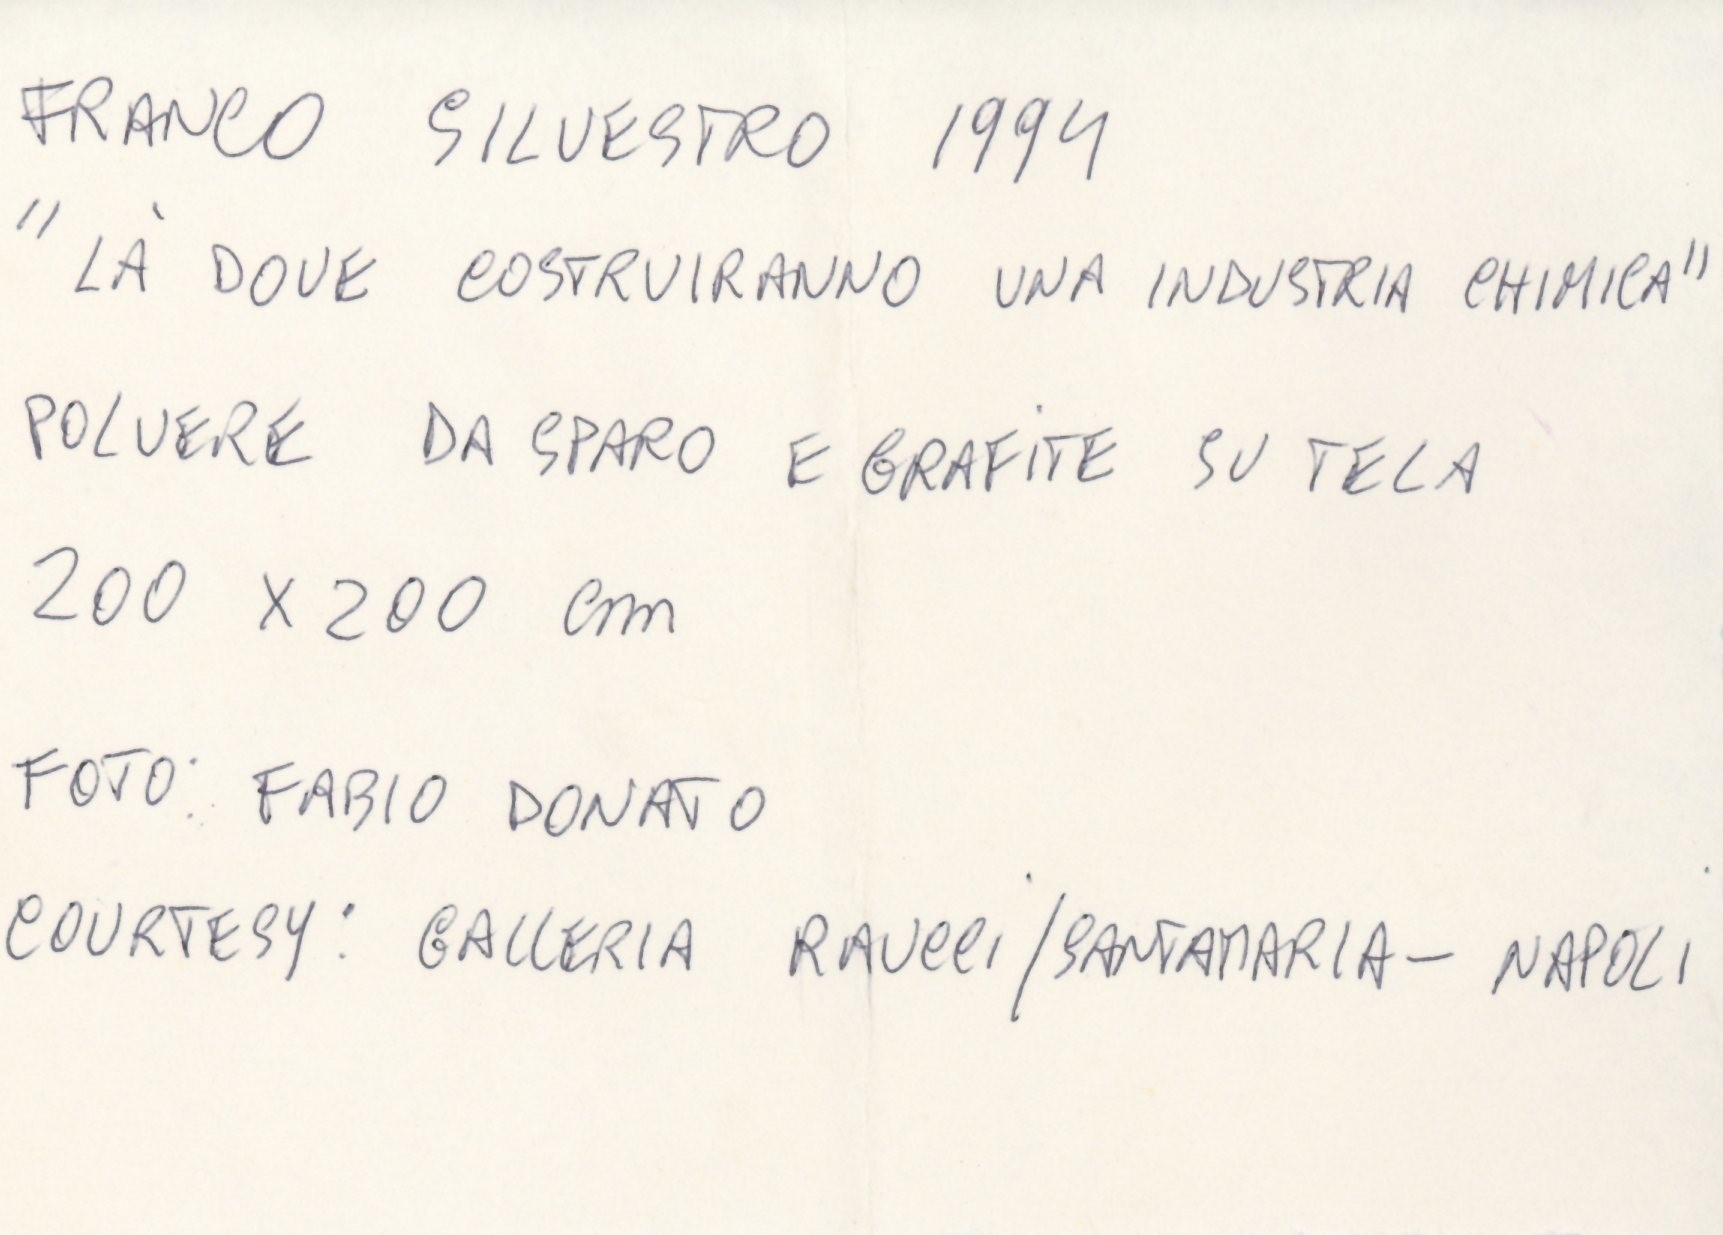 FRANCO SILVESTRO 1994
"LÀ DOVE COSTRUIRANNO UNA INDUSTRIA CHIMICA"
POLVERE DA SPARO E GRAFITE SU TELA
200 x 200 cm
FOTO: FABIO DONATO
COURTESY: GALLERIA RAUCCI/SANTAMARIA - NAPOLI